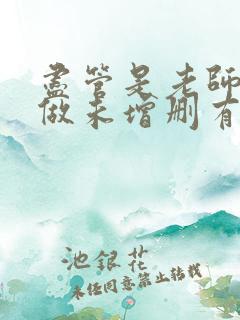 盡管是老師
做未增刪有
池銀花
未经同意禁止转载